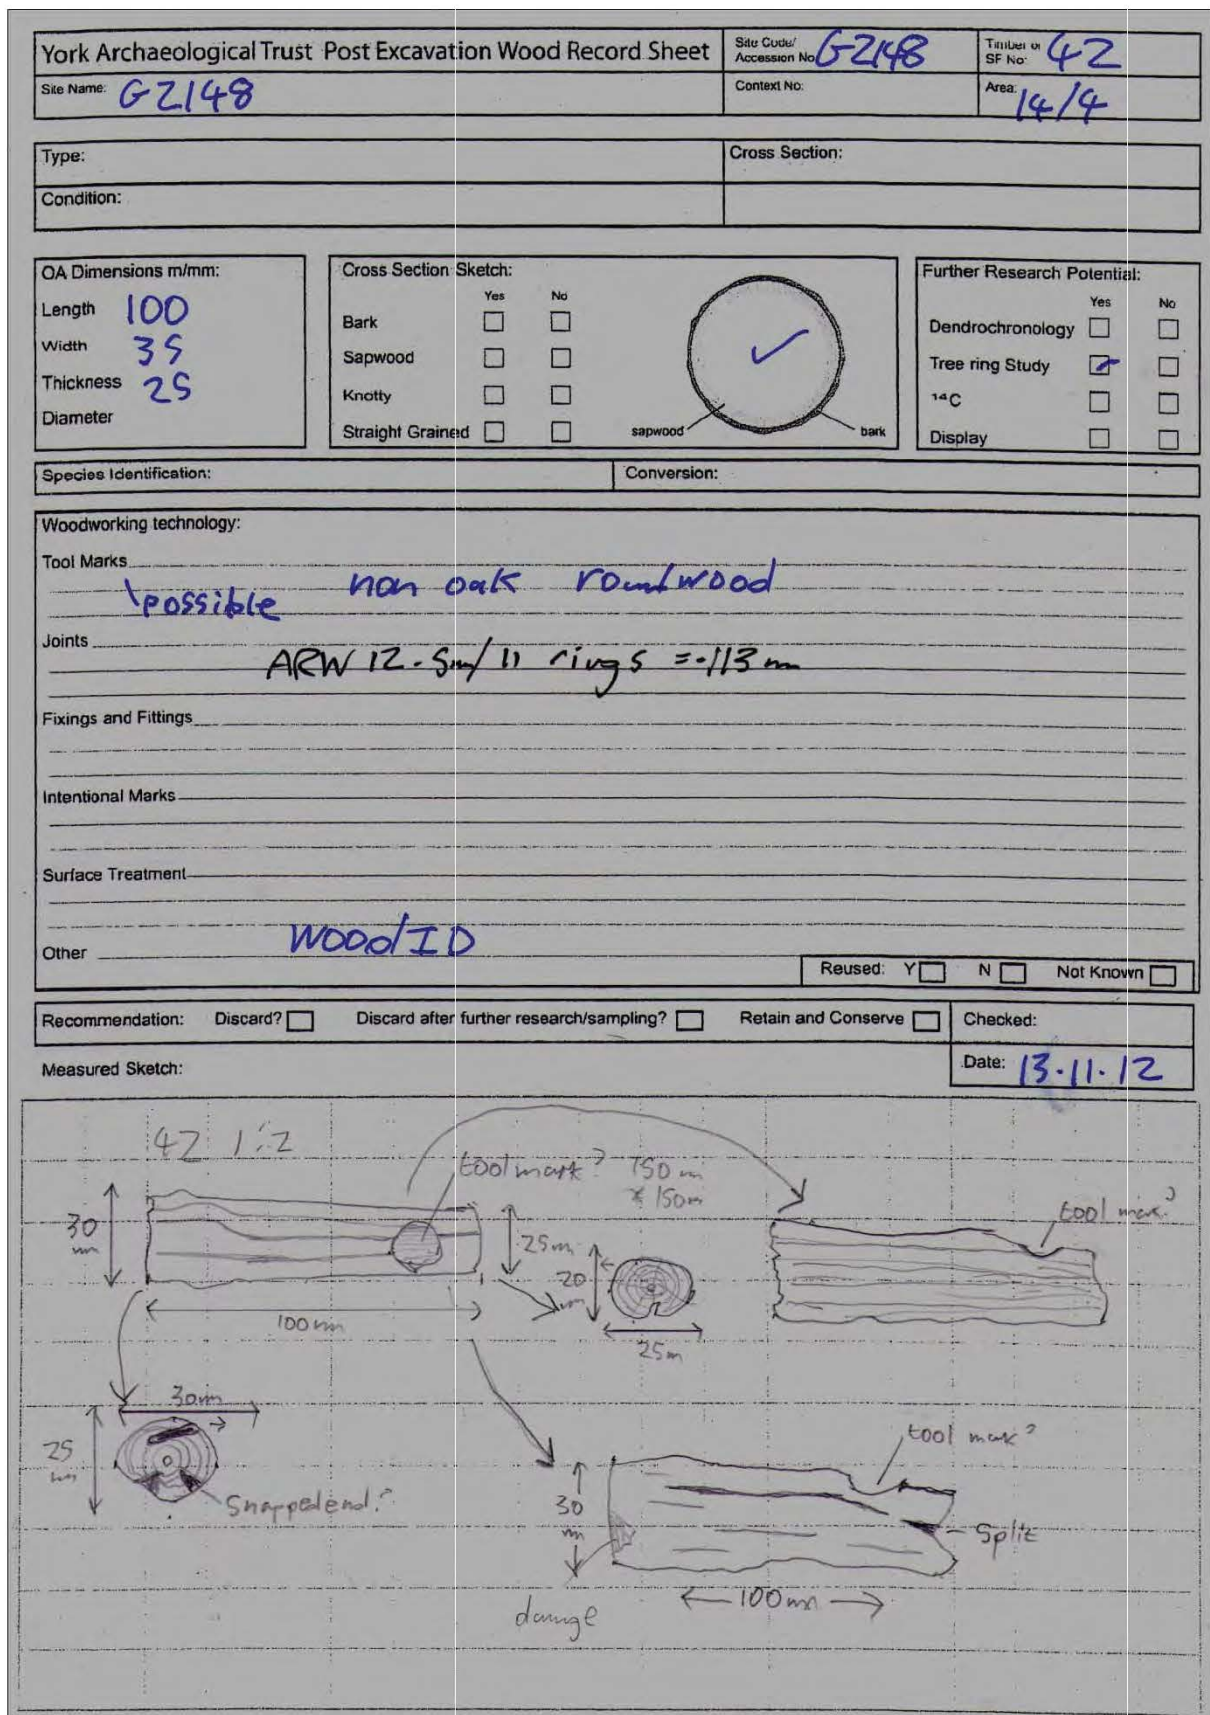 York Archaeological Trust Post Excavation Wood Record Sheet
Site Code/ Accession No G2148
Timber or SF No: 42
Site Name: G2148
Context No:
Area: 14/4
Type:
Cross Section:
Condition:
OA Dimensions m/mm:
Length 100
Width 35
Thickness 25
Diameter
Cross Section Sketch:
Yes No
Bark
Sapwood
Knotty
Straight Grained
sapwood
bark
Further Research Potential:
Yes No
Dendrochronology
Tree ring Study
¹⁴C
Display
Species Identification:
Conversion:
Woodworking technology:
Tool Marks
possible non oak roundwood
Joints
ARW 12.5m/ 11 rings = 113 m
Fixings and Fittings
Intentional Marks
Surface Treatment
Other Wood ID
Reused: Y N Not Known
Recommendation: Discard? Discard after further research/sampling? Retain and Conserve
Checked:
Measured Sketch:
Date: 13.11.12
42 1:2
tool mark? 150 m
* 150m
tool mark?
30 mm
25m
20 mm
100 mm
25m
30mm
25 mm
snapped end?
tool mark?
30 mm
split
100mm
damage